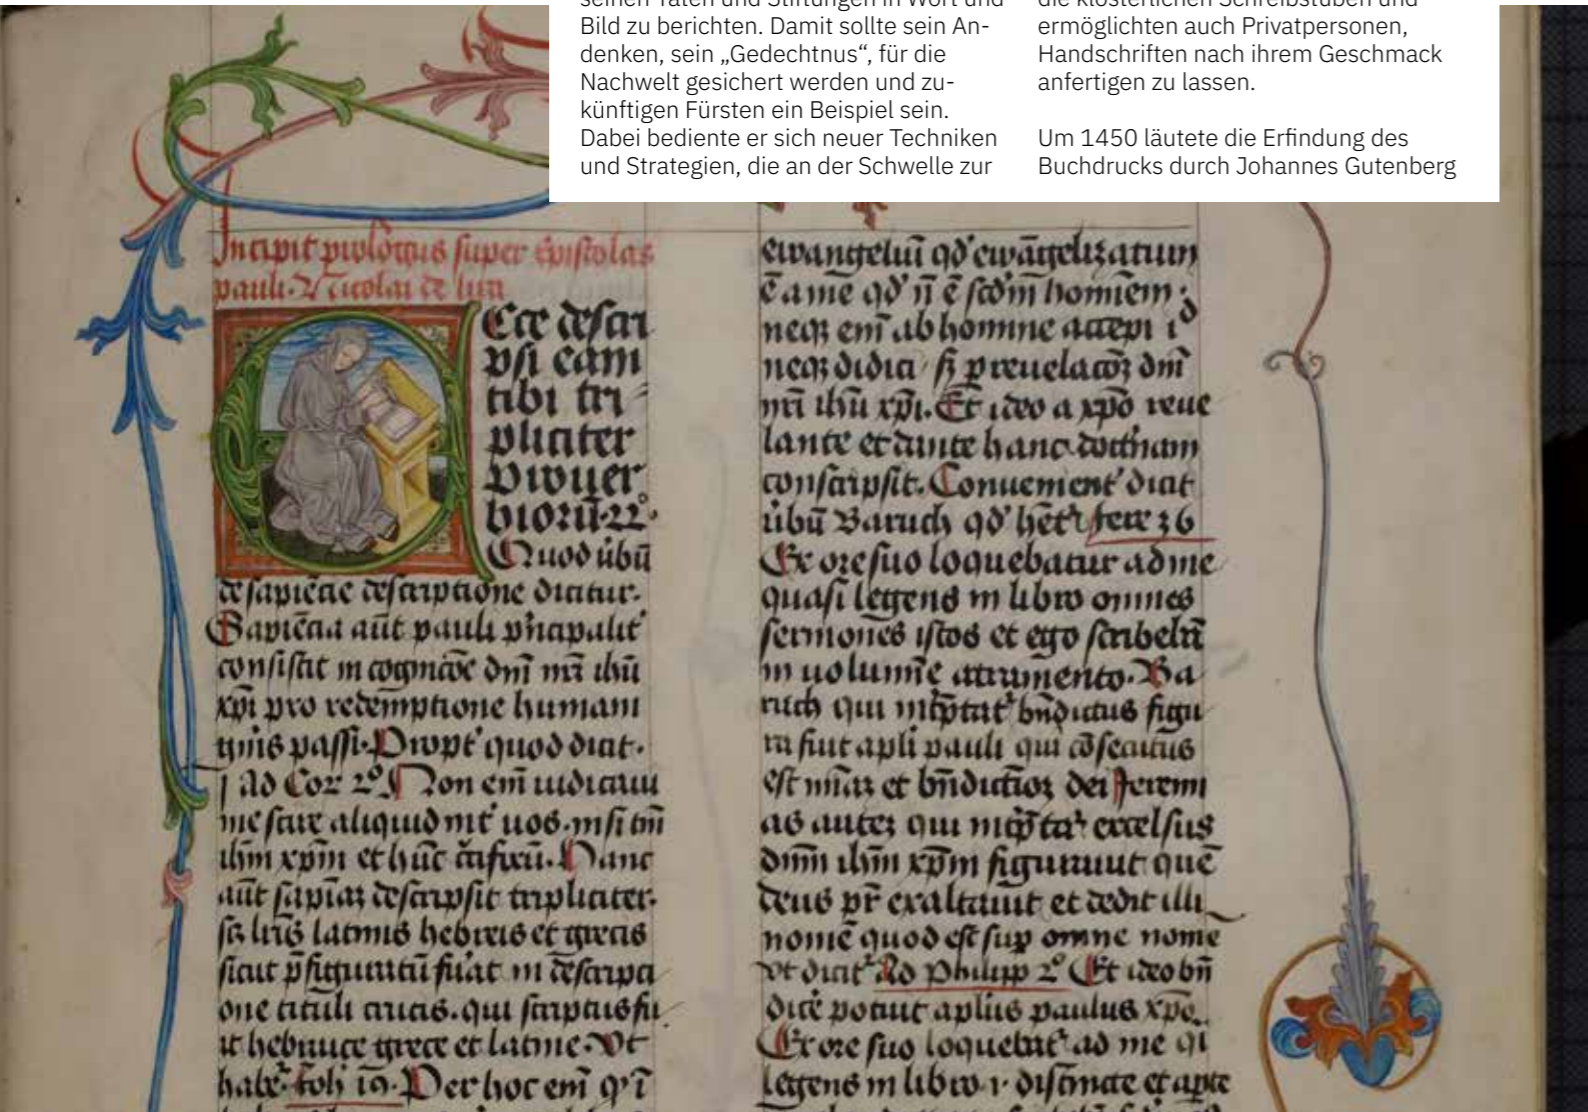 seinen Taten und Stiftungen in Wort und
Bild zu berichten. Damit sollte sein An-
denken, sein „Gedechtnus“, für die
Nachwelt gesichert werden und zu-
künftigen Fürsten ein Beispiel sein.
Dabei bediente er sich neuer Techniken
und Strategien, die an der Schwelle zur
die klösterlichen Schreibstuben und
ermöglichten auch Privatpersonen,
Handschriften nach ihrem Geschmack
anfertigen zu lassen.
Um 1450 läutete die Erfindung des
Buchdrucks durch Johannes Gutenberg
Incipit prologus super epistolas
pauli. Nicolai de lira
Ecce descri
psi eam
tibi tri
pliciter
Prouer
biorū. 22º.
Quod v̄bū
de sapiētie descriptione dicitur.
Sapiētia aūt pauli pͥncipalit᷑
consistit in cognicōe dn̄i nr̄i ihū
xp̄i pro redemptione humani
gn̄is passi. Propt᷑ quod dicit.
j ad Cor 2º. Non em̄ iudicaui
me scire aliquid int᷑ uos. nisi tm̄
ihm̄ xp̄m et hūc c̄ifixū. Hanc
aūt sapīaꝫ descripsit tripliciter.
sꝫ lr̄is latinis hebreis et grecis
sicut p̄figuratū fūat in descripti
one tituli crucis. qui scriptus fu
it hebraice grece et latine. Vt
habet᷑ Joh 19. Per hoc em̄ qͥ ī
ewangeliū qd᷑ ewāgelizatum
ē a me qd᷑ nō ē scd᷑m hominem.
neqꝫ em̄ ab homine accepi id
neqꝫ didici sꝫ p reuelacōꝫ dn̄i
nr̄i ihū xp̄i. Et ideo a xp̄o reue
lante et dante hanc doctͥnam
conscripsit. Conuenient᷑ dicit
v̄bū Baruch qd᷑ het᷑ Jere 36
Ex ore suo loquebatur ad me
quasi legens in libro omnes
sermones istos et ego scribebā
in uolumīe attramento. Ba
ruch qui int᷑ptat᷑ bn̄dictus figu
ra fuit apl̄i pauli qui cōsecutus
est mīaꝫ et bn̄dictioꝫ dei Jeremi
as auteꝫ qui int᷑ptat᷑ excelsus
dn̄m ihm̄ xp̄m figurauit quē
deus pr̄ exaltauit et dedit illi
nomē quod est sup omne nomē
vt dicit᷑ Ad Philipp 2º Et ideo bn̄
dicē potuit aplūs paulus xp̄o.
Ex ore suo loquebat᷑ ad me qͥ
legens in libro. i. distincte et apte